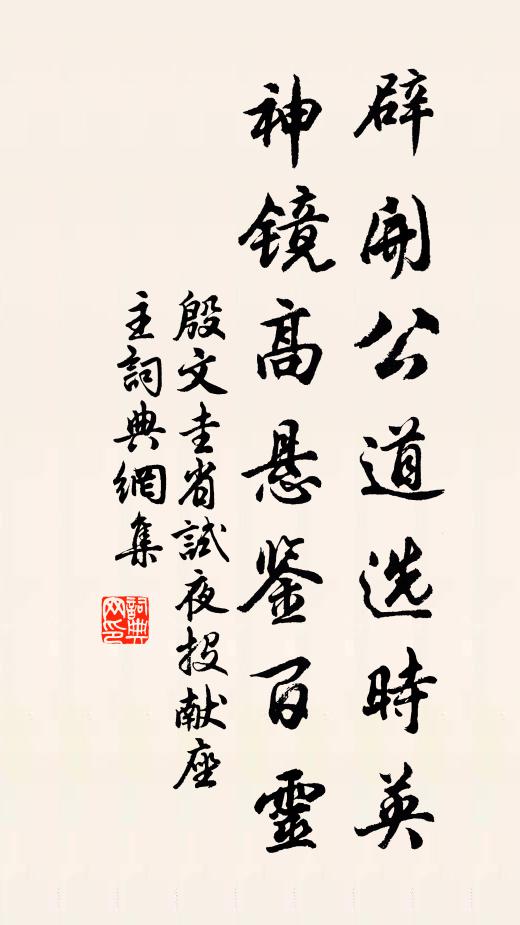 辟開公道选時英
神镜高悬鉴百靈
殷文圭省試夜投献座
主詞典網集
詞典
网印